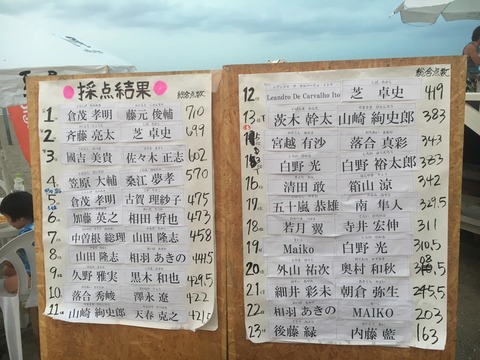 採点結果
総合点数
1 倉茂 孝明 藤元 俊輔 710
2 斉藤 亮太 芝 卓史 699
3 國吉 美貴 佐々木 正志 602
4 笠原 大輔 桑江 夢孝 570
5 倉茂 孝明 古賀 理紗子 475
6 加藤 英之 相田 哲也 473
7 中曽根 総理 山田 隆志 458
8 山田 隆志 相羽 あきの 444.5
9 久野 雅実 黒木 和也 429.5
10 落合 秀峻 澤永 遼 422
11 山崎 絢史郎 天春 克之
総合点数
12 Leandro De Carvalho Ito 芝 卓史 419
13 茨木 幹太 山崎 絢史郎 383
宮越 有沙 落合 真彩
白野 光 白野 裕太郎
16 清田 敢 箱山 涼 342
五十嵐 恭雄 南 隼人 329.5
18 若月 翼 寺井 宏伸 311
19 Maiko 白野 光 310.5
20 外山 祐次 奥村 和秋
21 細井 彩未 朝倉 弥生
22 相羽 あきの MAIKO 203
23 後藤 緑 内藤 藍 163